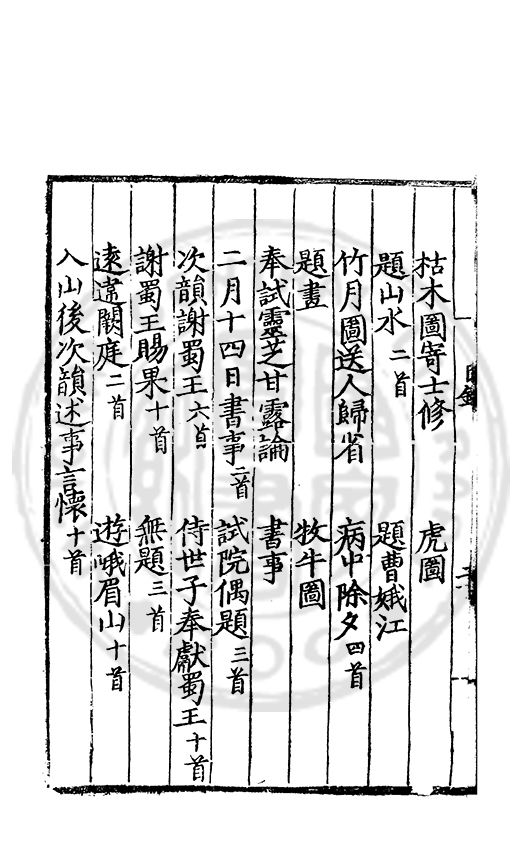 枯木圖寄士修　虎圖
題山水二首　題曹娥江
竹月圖送人歸省　病中除夕四首
題畫　牧牛圖
奉試靈芝甘露論　書事
二月十四日書事二首　試院偶題三首
次韻謝蜀王六首　侍世子奉獻蜀王十首
謝蜀王賜果十首　無題三首
遠違闕庭二首　遊峨眉山十首
入山後次韻述事言懷十首
目錄